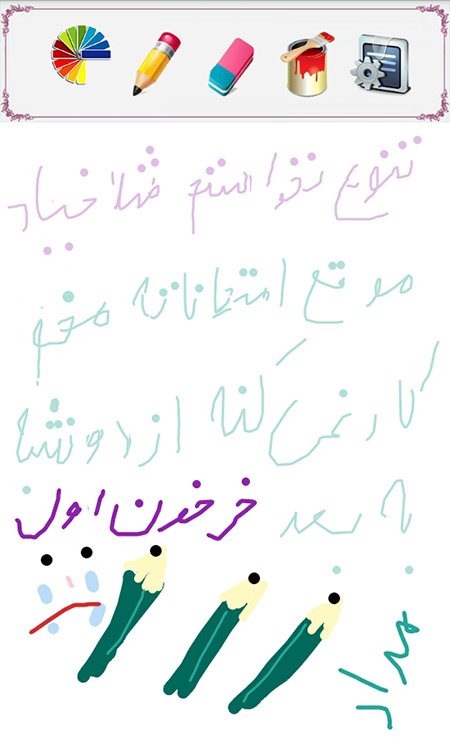 تنوع نتوانستم خیار
موقع امتحاناته مخم
کار نمی کنه از دوشنبه
به بعد خرخون اول
مداد